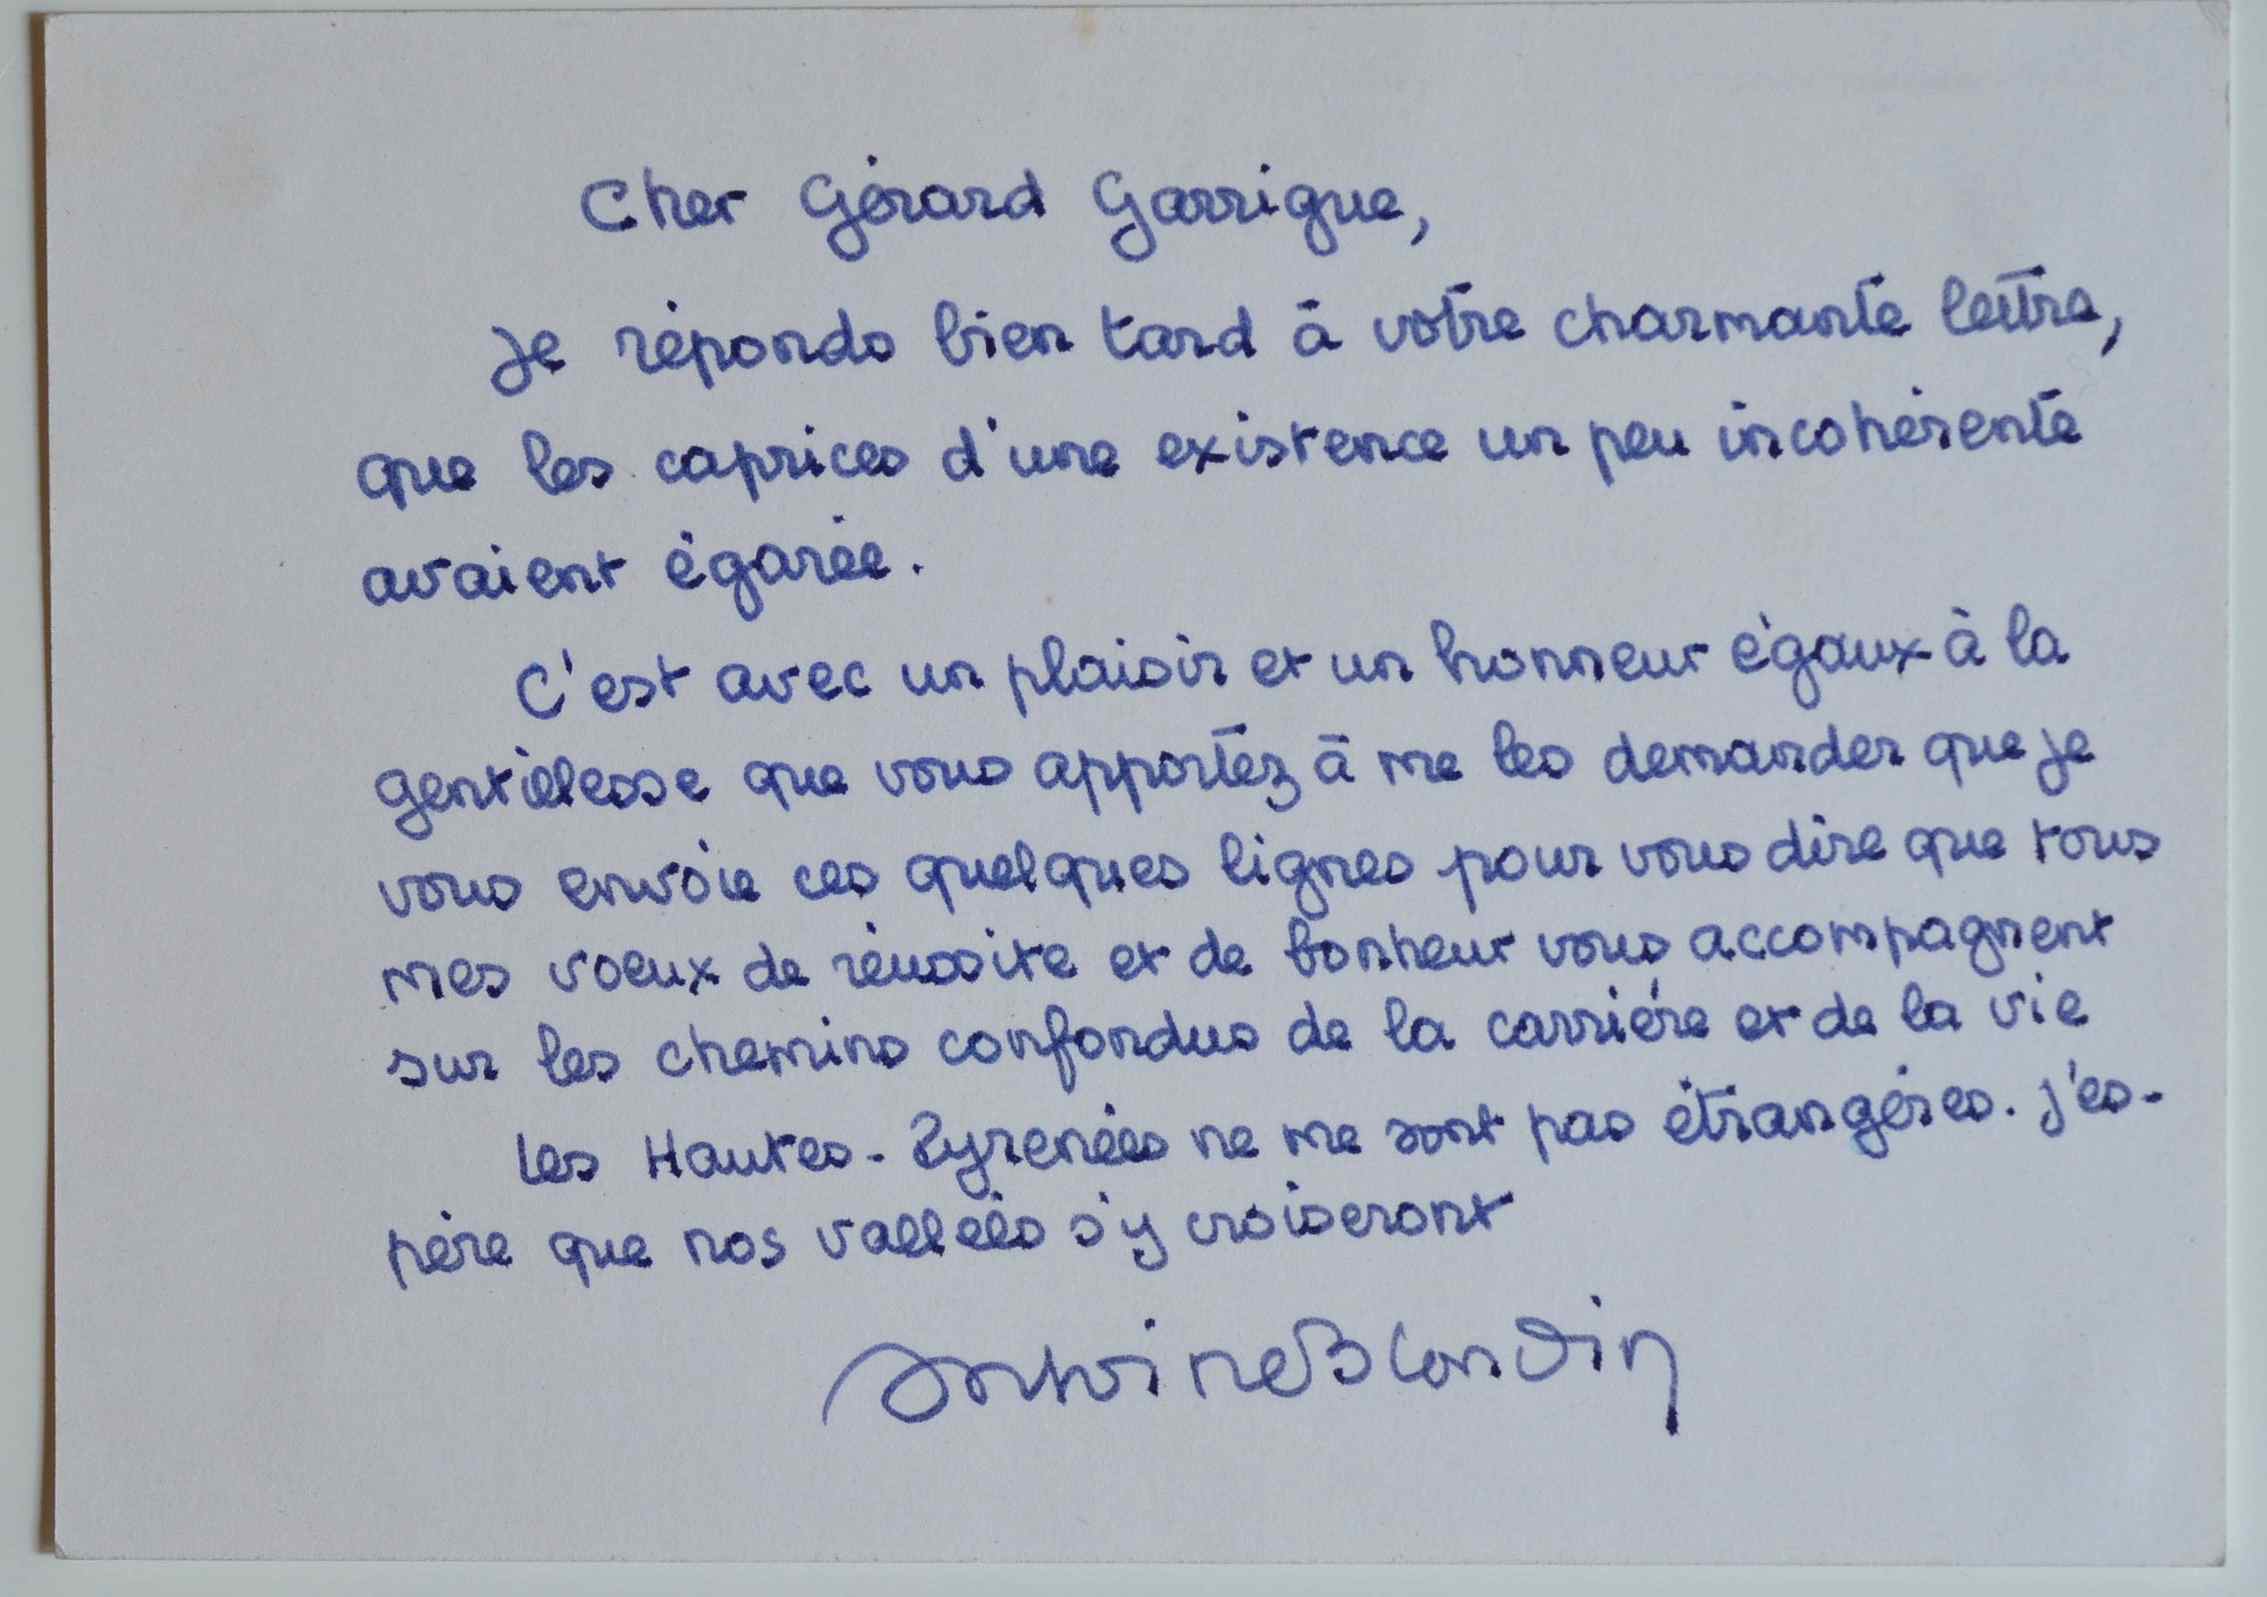 Cher Gérard Garrigue,
Je réponds bien tard à votre charmante lettre,
que les caprices d'une existence un peu incohérente
avaient égarée.
C'est avec un plaisir et un honneur égaux à la
gentillesse que vous apportez à me les demander que je
vous envoie ces quelques lignes pour vous dire que tous
mes voeux de réussite et de bonheur vous accompagnent
sur les chemins confondus de la carrière et de la vie
Les Hautes-Pyrenées ne me sont pas étrangères. J'es-
père que nos vallées s'y croiseront
Antoine Blondin